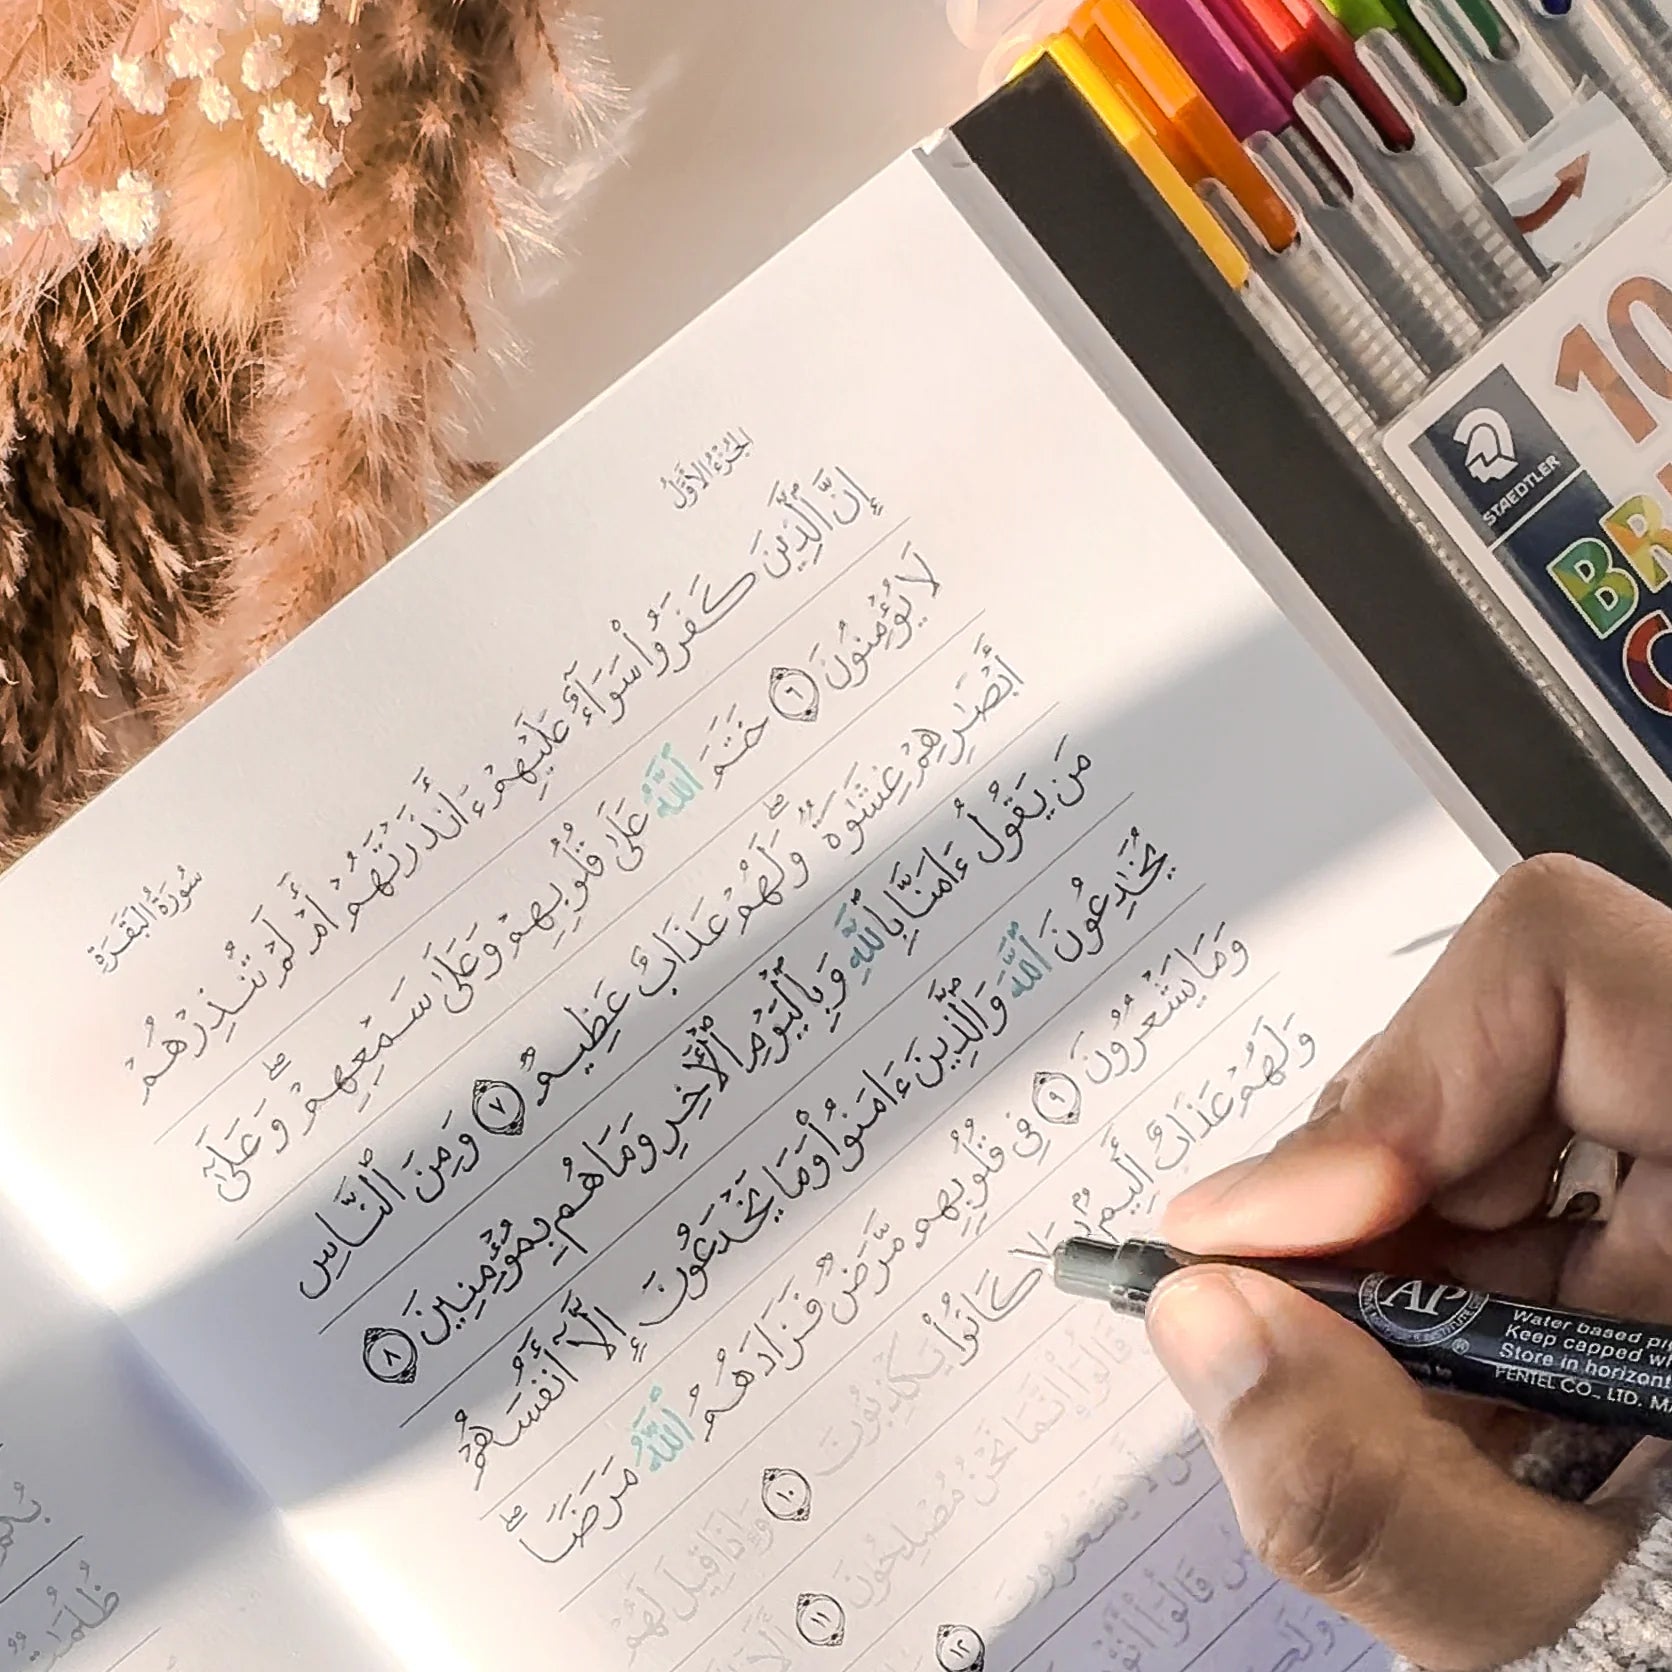 الجُزْءُ الأَوَّلُ
سُورَةُ البَقَرَةِ
إِنَّ ٱلَّذِينَ كَفَرُوا۟ سَوَآءٌ عَلَيْهِمْ ءَأَنذَرْتَهُمْ أَمْ لَمْ تُنذِرْهُمْ
لَا يُؤْمِنُونَ ٦ خَتَمَ ٱللَّهُ عَلَىٰ قُلُوبِهِمْ وَعَلَىٰ سَمْعِهِمْ ۖ وَعَلَىٰٓ
أَبْصَـٰرِهِمْ غِشَـٰوَةٌ ۖ وَلَهُمْ عَذَابٌ عَظِيمٌ ٧ وَمِنَ ٱلنَّاسِ
مَن يَقُولُ ءَامَنَّا بِٱللَّهِ وَبِٱلْيَوْمِ ٱلْـَٔاخِرِ وَمَا هُم بِمُؤْمِنِينَ ٨
يُخَـٰدِعُونَ ٱللَّهَ وَٱلَّذِينَ ءَامَنُوا۟ وَمَا يَخْدَعُونَ إِلَّآ أَنفُسَهُمْ
وَمَا يَشْعُرُونَ ٩ فِى قُلُوبِهِم مَّرَضٌ فَزَادَهُمُ ٱللَّهُ مَرَضًا ۖ
وَلَهُمْ عَذَابٌ أَلِيمٌۢ بِمَا كَانُوا۟ يَكْذِبُونَ ١٠ وَإِذَا قِيلَ لَهُمْ
قَالُوٓا۟ إِنَّمَا نَحْنُ مُصْلِحُونَ ١١ أَلَآ
لَّا يَشْعُرُونَ ١٢
قَالُوٓا۟ أَنُؤْمِنُ
ظُلُمَـٰتٌ
STAEDTLER
10
AP
Water based
Keep capped
Store in horizont
PENTEL CO., LTD.